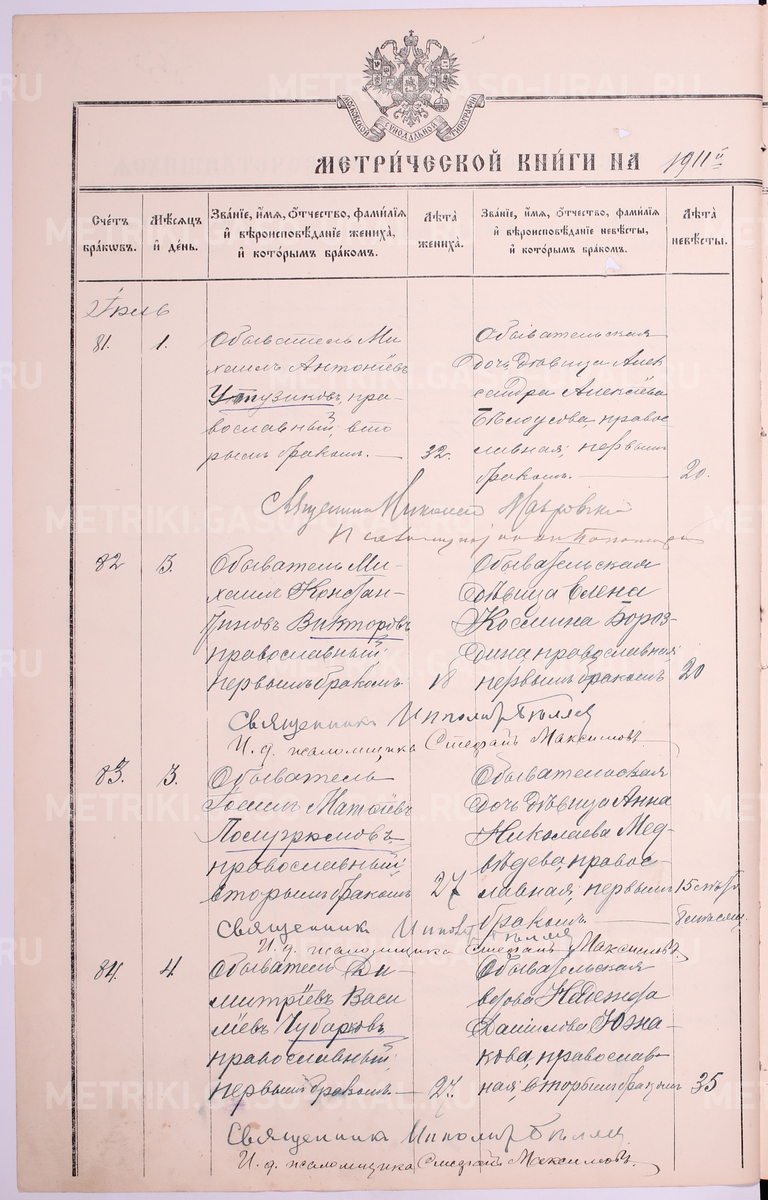 МОСКОВСКОЙ СѴНОДАЛЬНОЙ ТИПОГРАФІИ
МЕТРИ́ЧЕСКОЙ КНИ́ГИ НА 1911й
Сче́тъ бра́кѡвъ.
Мѣ́сяцъ и҆ де́нь.
Зва́нїе, и҆́мѧ, ѻ҆́тчество, фами́лїѧ и҆ вѣроисповѣ́данїе жениха̀, и҆ кото́рымъ бра́комъ.
Лѣ́та жениха̀.
Зва́нїе, и҆́мѧ, ѻ҆́тчество, фами́лїѧ и҆ вѣроисповѣ́данїе невѣ́сты, и҆ кото́рымъ бра́комъ.
Лѣ́та невѣ́сты.
81.
1.
Обыватель Ми-
хаилъ Антоніевъ
пра-
вославный, вто
рымъ бракомъ.
32.
Обывательская
дочь, дѣвица Алек
сандра Алексіева
Бѣлоусова, правос
лавная, первымъ
бракомъ.
20.
Священникъ Николай
82
3.
Обыватель Ми-
хаилъ Констан-
тиновъ Викторовъ
православный
первымъ бракомъ
18
Обывательская
дѣвица Елена
Космина Бороз-
дина, православная
первымъ бракомъ
20
Священникъ Ипполитъ Бѣляев
И. д. псаломщика Стефанъ Максимовъ
83.
3.
Обыватель
Матѳіевъ
Полугрюмовъ
православный,
вторымъ бракомъ
27
Обывательская
дочь дѣвица Анна
Николаева Мед-
вѣдева, правос-
лавная, первымъ
бракомъ
15
Священникъ Ипполитъ Бѣляев
И. д. псаломщика Стефанъ Максимовъ.
84.
4
Обыватель Ди-
митріевъ Васи
ліевъ Чубарковъ
православный,
первымъ бракомъ
27.
Обывательская
вдова Надежда
Даниилова Южа-
кова, православ-
ная, вторымъ бракомъ
35
Священникъ Ипполитъ Бѣляев
И. д. псаломщика Стефанъ Максимовъ.